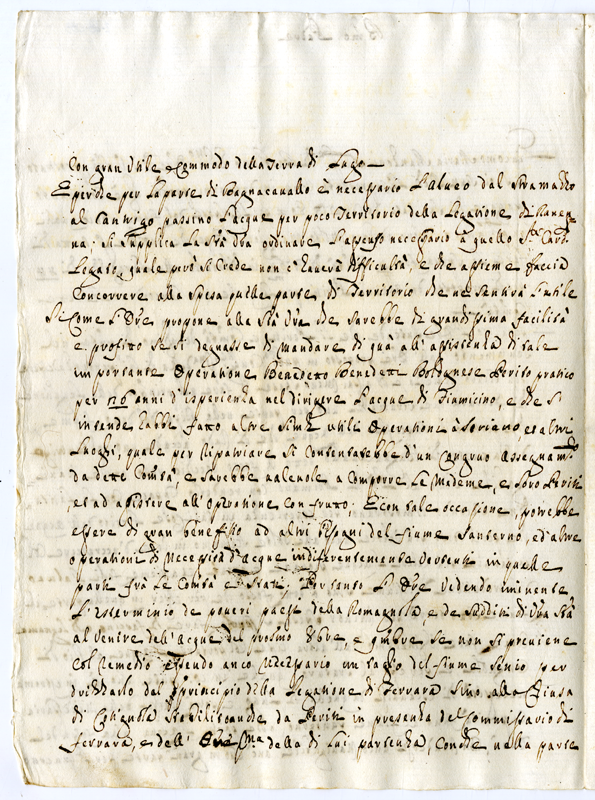 Con gran Utile e Commodo della Terra di Lugo
E perche per la parte di Bagnacavallo è necessario l'alveo dal Stramazzo
al Canvigo passino l'acque per poco Territorio della Legatione di Raven
na: Si supplica la Stà Vra ordinare l'assenso necessario à quello Sr. Card.
Legato, quale però si Crede non c'haverà difficultà, e che assieme faccia
Concorrere alla spesa quelle parte di Territorio che ne sentirà l'utile
Si Come l'Ore propone alla Stà Vra che sarebbe di grandissima facilità
e profitto se si degnasse di mandare di quà all'assistenza di tale
importante Operatione Benedetto Benedetti Bolognese Perito pratico
per anni d'esperienza nel dirigere l'acque di Fiumicino, e che s'
intende habbi fatto altre simili utili Operationi à Soriano et altri
Luoghi, quale per Ripatriare si Contentarebbe d'un Congruo Assegnamto
da dette Combà, e sarebbe valevole a Comporre le Mademe, e loro Periti
et ad assistere all'operatione con frutto; E con tale occasione, potrebbe
essere di gran benefitio ad altri bisogni del fiume Santerno, ed altre
operationi di Necessità d'acque indiferentemente Vertenti in quelle
parti frà le Combà e Stati; Per tanto l'Ore Vedendo iminente
l'esterminio de poveri paesi della Romagnola, e de Sudditi di Vra Stà
al Venire dell'acque del prossimo 8bre, e 9mbre se non si previene
Col Remedio essendo anco Necessario un taglio del fiume Senio per
drizzarlo dal principio della Legatione di Ferrara sino alla Chiusa
di Cotignola Stabilito anche da Periti in presenza del Commissario di
Ferrara, e dell' della di lui partenza, Conche nella parte